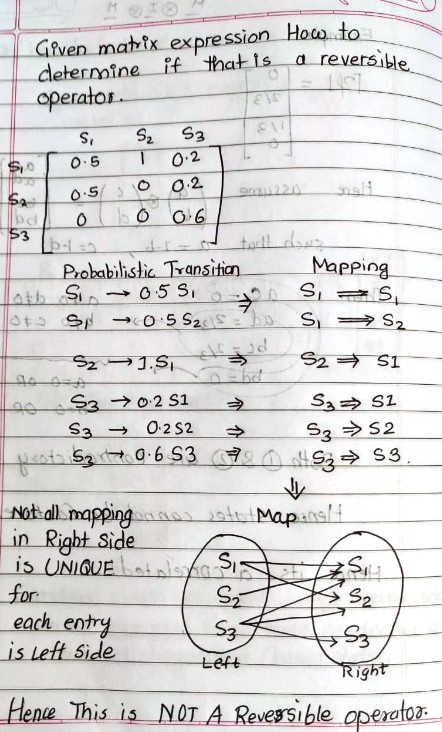 Given matrix expression How to
determine if that is a reversible
operator.
S1 S2 S3
S1 0.5 1 0.2
S2 0.5 0 0.2
S3 0 0 0.6
Probabilistic Transition Mapping
S1 → 0.5 S1 ⇒ S1 ⟹ S1
S1 → 0.5 S2 S1 ⟹ S2
S2 → 1.S1 ⇒ S2 ⇒ S1
S3 → 0.2 S1 ⇒ S3 ⇒ S1
S3 → 0.2 S2 ⇒ S3 ⇒ S2
S3 → 0.6 S3 ⇒ S3 ⇒ S3.
⇓
Not all mapping Map
in Right Side
is UNIQUE S1 S1
for S2 S2
each entry S3 S3
is Left Side Left Right
Hence This is NOT A Reversible operator.